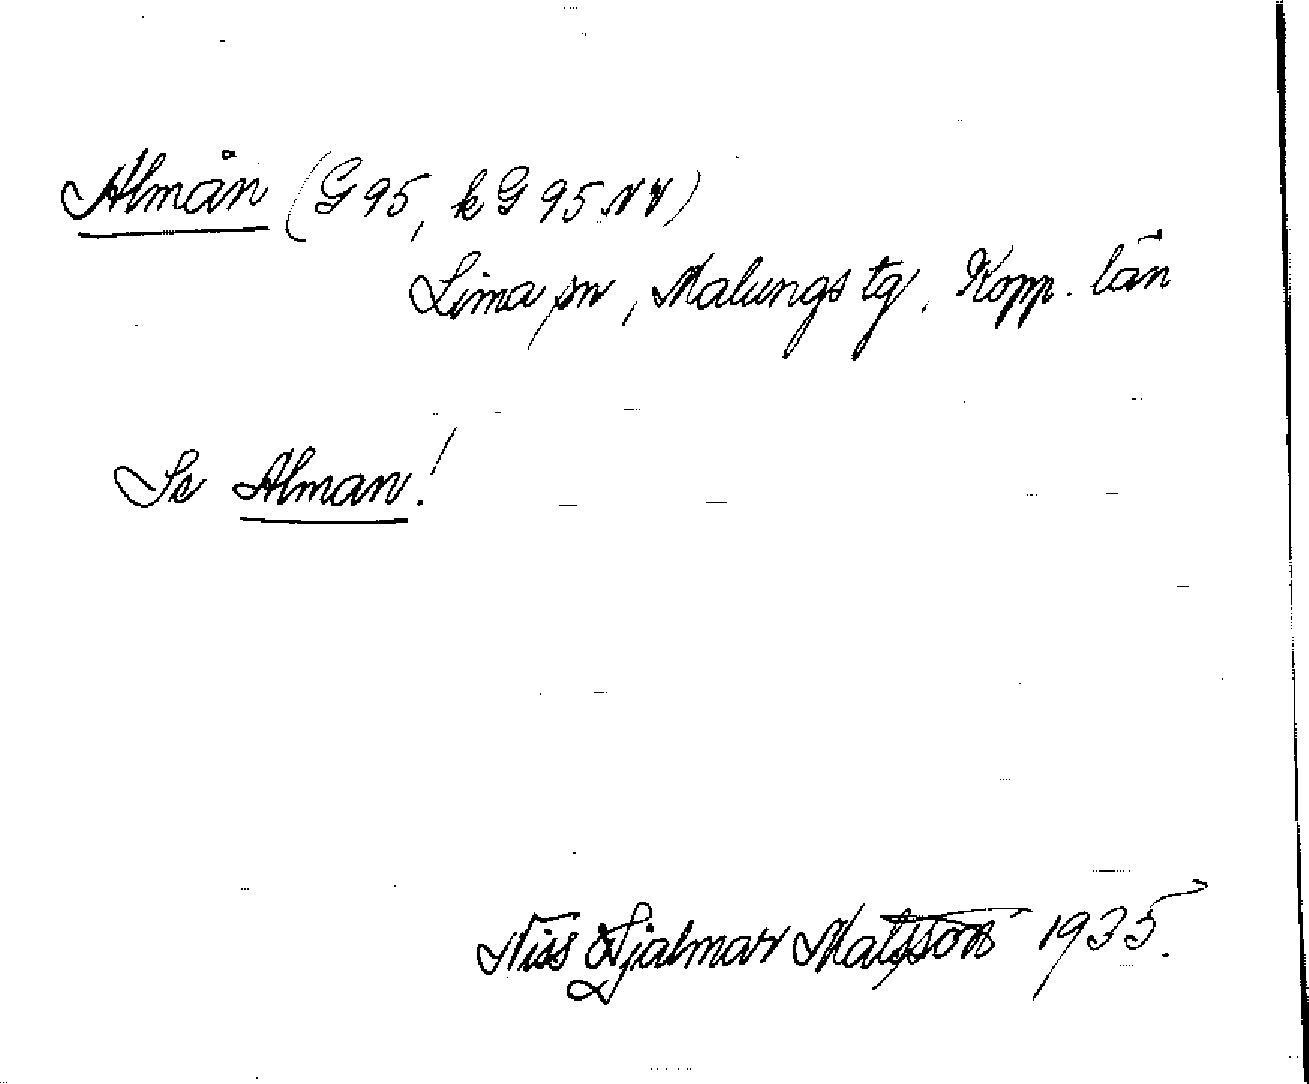 Almån (G 95, k G 95 NV)
Lima sn, Malungs tg. Kopp. län
Se Alman!
Niss Hjalmar Matsson 1935.